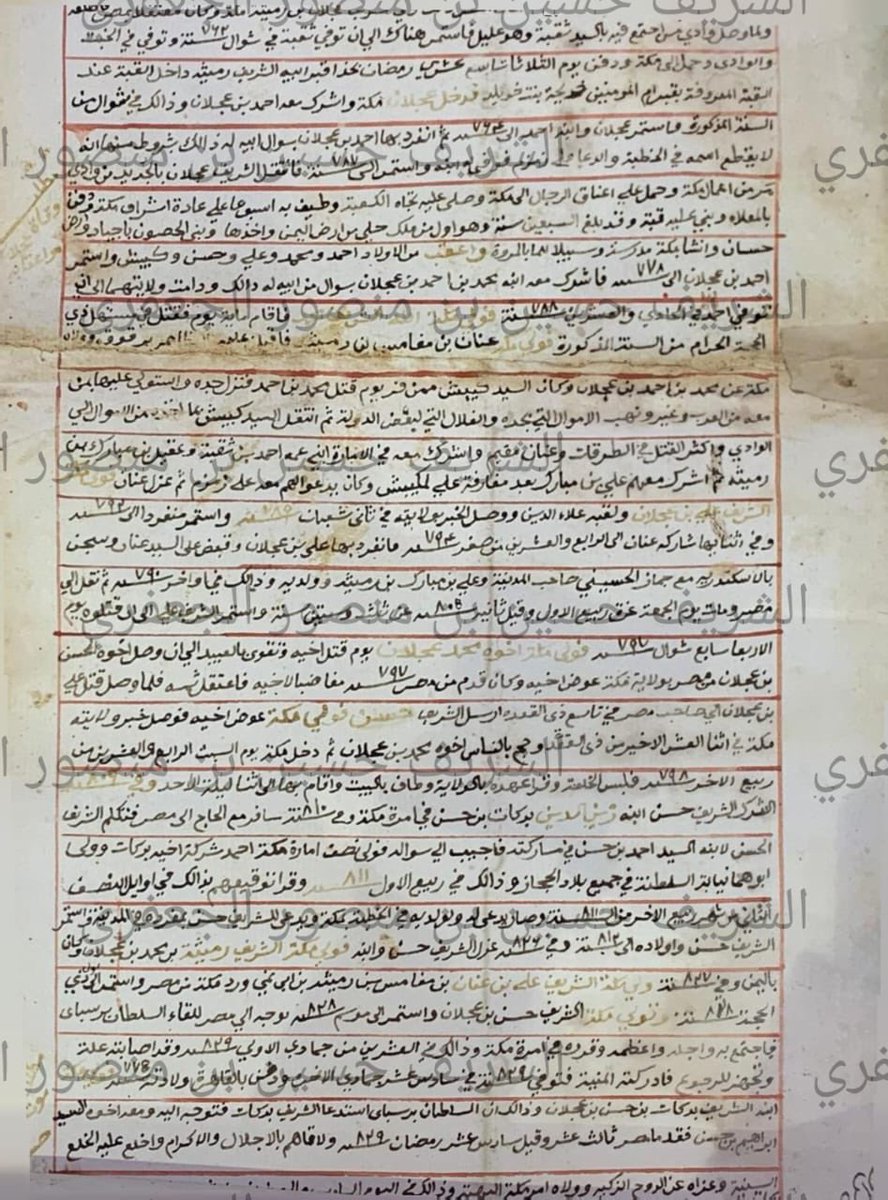 ولما وصل وادي مر اجتمع فيه بالسيد ثقبة وهو عليل فاستمر هناك الى ان توفي ثقبة في شوال سنة ٧٦٢ وتوفي في
والوادي وحمل الى مكة ودفن يوم الثلاثا تاسع عشري رمضان بحذا قبر ابيه الشريف رميثه داخل القبة عند
القبة المعروفة بقبر ام المومنين خديجة بنت خويلد فدخل عجلان مكة واشرك معه احمد بن عجلان وذالك في شوال من
السنة المذكورة فاستمر عجلان وابنه احمد الى سنة ٧٦٤ ثم انفرد بها احمد بن عجلان بسوال ابيه له ذالك بشروط منها انه
لا يقطع اسمه في الخطبة والدعا فوفى له ابنه واستمر الى سنة ٧٨٧ فانتقل الشريف عجلان بالجديد من وادي
مر من اعمال مكة وحمل على اعناق الرجال الى مكة وصلي عليه تجاه الكعبة وطيف به اسبوعا على عادة اشراف مكة ودفن
بالمعلاه وبني عليه قبة وقد بلغ السبعين سنة وهو اول من ملك حلي من ارض اليمن واخذها وبنى الحصون باجياد وارض
حسان وانشا بمكة مدرسة وسبيلا لها بالمروة واعقب من الاولاد احمد ومحمد وعلي وحسن وكبيش واستمر
احمد بن عجلان الى سنة ٧٧٨ فاشرك معه ابنه محمد بن احمد بن عجلان بسوال من ابيه له ذالك ودامت ولايتهما الى ان
توفي احمد في الحادي والعشرين سنة ٧٨٨ فاقام ماية يوم فقتل في مستهل ذي
الحجة الحرام من السنة المذكورة فولي مكة عنان بن مغامس بن رميثه
مكة عن محمد بن احمد بن عجلان وكان السيد كبيش ممن فر يوم قتل محمد بن احمد فنزل جده واستولى عليها بمن
معه من العرب وعبيد ونهب الاموال التي بجده والغلال التي لبعض الدولة ثم انتقل السيد كبيش بما اخذ من الاموال الى
الوادي واكثر القتل في الطرقات وعنان مقيم واشرك معه في الامارة ابني عمه احمد بن ثقبة وعقيل بن مبارك بن
رميثه ثم اشرك معهم علي بن مبارك بعد مفارقة علي لكبيش وكان يدعو لهم معه على زمزم ثم عزل عنان
الشريف علي بن عجلان ولقبه علاء الدين ووصل الخبر بولايته في ثاني شعبان سنة واستمر منفردا الى سنة
وفي اثنايها شاركه عنان الى الرابع والعشرين من صفر سنة ٧٩٤ فانفرد بها علي بن عجلان وقبض على السيد عنان وسجن
بالاسكندريه مع جماز الحسيني صاحب المدينة وعلي بن مبارك بن رميثه وولديه وذالك في اواخر سنة ٧٩٠ ثم نقل الى
مصر ومات يوم الجمعة غرة ربيع الاول وقيل ثانيه سنة ٨٠٥ عن ثلاث وستين سنة واستمر الشريف علي الى ان قتلوه يوم
الاربعا سابع شوال سنة ٧٩٧ فولي مكة اخوه محمد بن عجلان يوم قتل اخيه وتقوى بالعبيد الى ان وصل اخوه الحسن
بن عجلان من مصر بولاية مكة عوض اخيه وكان قدم من مصر سنة ٧٩٧ مغاضبا لاخيه فاعتقل نفسه فلما وصل قتل علي
بن عجلان الى صاحب مصر في تاسع ذي القعده ارسل الشريف حسن فولي مكة عوض اخيه فوصل خبر ولايته
مكة في اثنا العشر الاخير من ذي القعده وحج بالناس اخوه محمد بن عجلان ثم دخل مكة يوم السبت الرابع والعشرين من
ربيع الاخر سنة ٧٩٨ فلبس الخلعة وقرا عهده بالولاية وطاف بالبيت واقام بها الى اثنا ليلة الاحد وفي سنة ٨٠٩
اشرك الشريف حسن ابنه زين الدين بركات بن حسن في امرة مكة وفي سنة ٨١٠ سافر مع الحاج الى مصر فتكلم الشريف
الحسن لابنه السيد احمد بن حسن في مشاركته فاجيب الى سواله فولي نصف امارة مكة احمد شركة اخيه بركات وولى
ابوهما نيابة السلطنة في جميع بلاد الحجاز وذالك في ربيع الاول سنة ٨١١ وقرا توقيعهم بذالك في اوايل النصف
الثاني من شهر ربيع الاخر من سنة ٨١١ وصار يدعى له ولولديه في الخطبة بمكة ويدعى للشريف حسن بمفرده في المدينة واستمر
الشريف حسن واولاده الى سنة ٨١٢ وفي سنة ٨٢٦ عزل الشريف حسن وابنه فولي مكة الشريف رميثة بن محمد بن عجلان وكان
باليمن وفي سنة ٨٢٧ ولي مكة الشريف علي بن عنان بن مغامس بن رميثه بن ابي نمي ورد مكة من مصر واستمر الى ذي
الحجة سنة ٨٢٨ وتولي مكة الشريف حسن بن عجلان واستمر الى موسم سنة ٨٢٨ توجه الى مصر للقاء السلطان برسباى
فاجتمع به واجله واعظمه وقرره في امرة مكة وذالك في العشرين من جمادي الاولى سنة ٨٢٩ وقد اصابته علة
وتجهز للرجوع فادركته المنية فتوفي سنة ٨٢٩ في سادس عشر جمادي الاخر ودفن بالقاهرة ولادته سنة ٧٧٥
ابنه الشريف بركات بن حسن بن عجلان وذالك ان السلطان برسباى استدعا الشريف بركات فتوجه اليه ومعه اخوه السيد
ابراهيم بن حسن فقدما مصر ثالث عشر وقيل سادس عشر رمضان سنة ٨٢٩ ولاقاهم بالاجلال والاكرام واخلع عليه الخلع
السنية وعزاه عن الروح الزكيه وولاه امر مكة البهية وذالك في
الشريف حسين بن منصور الجعفري